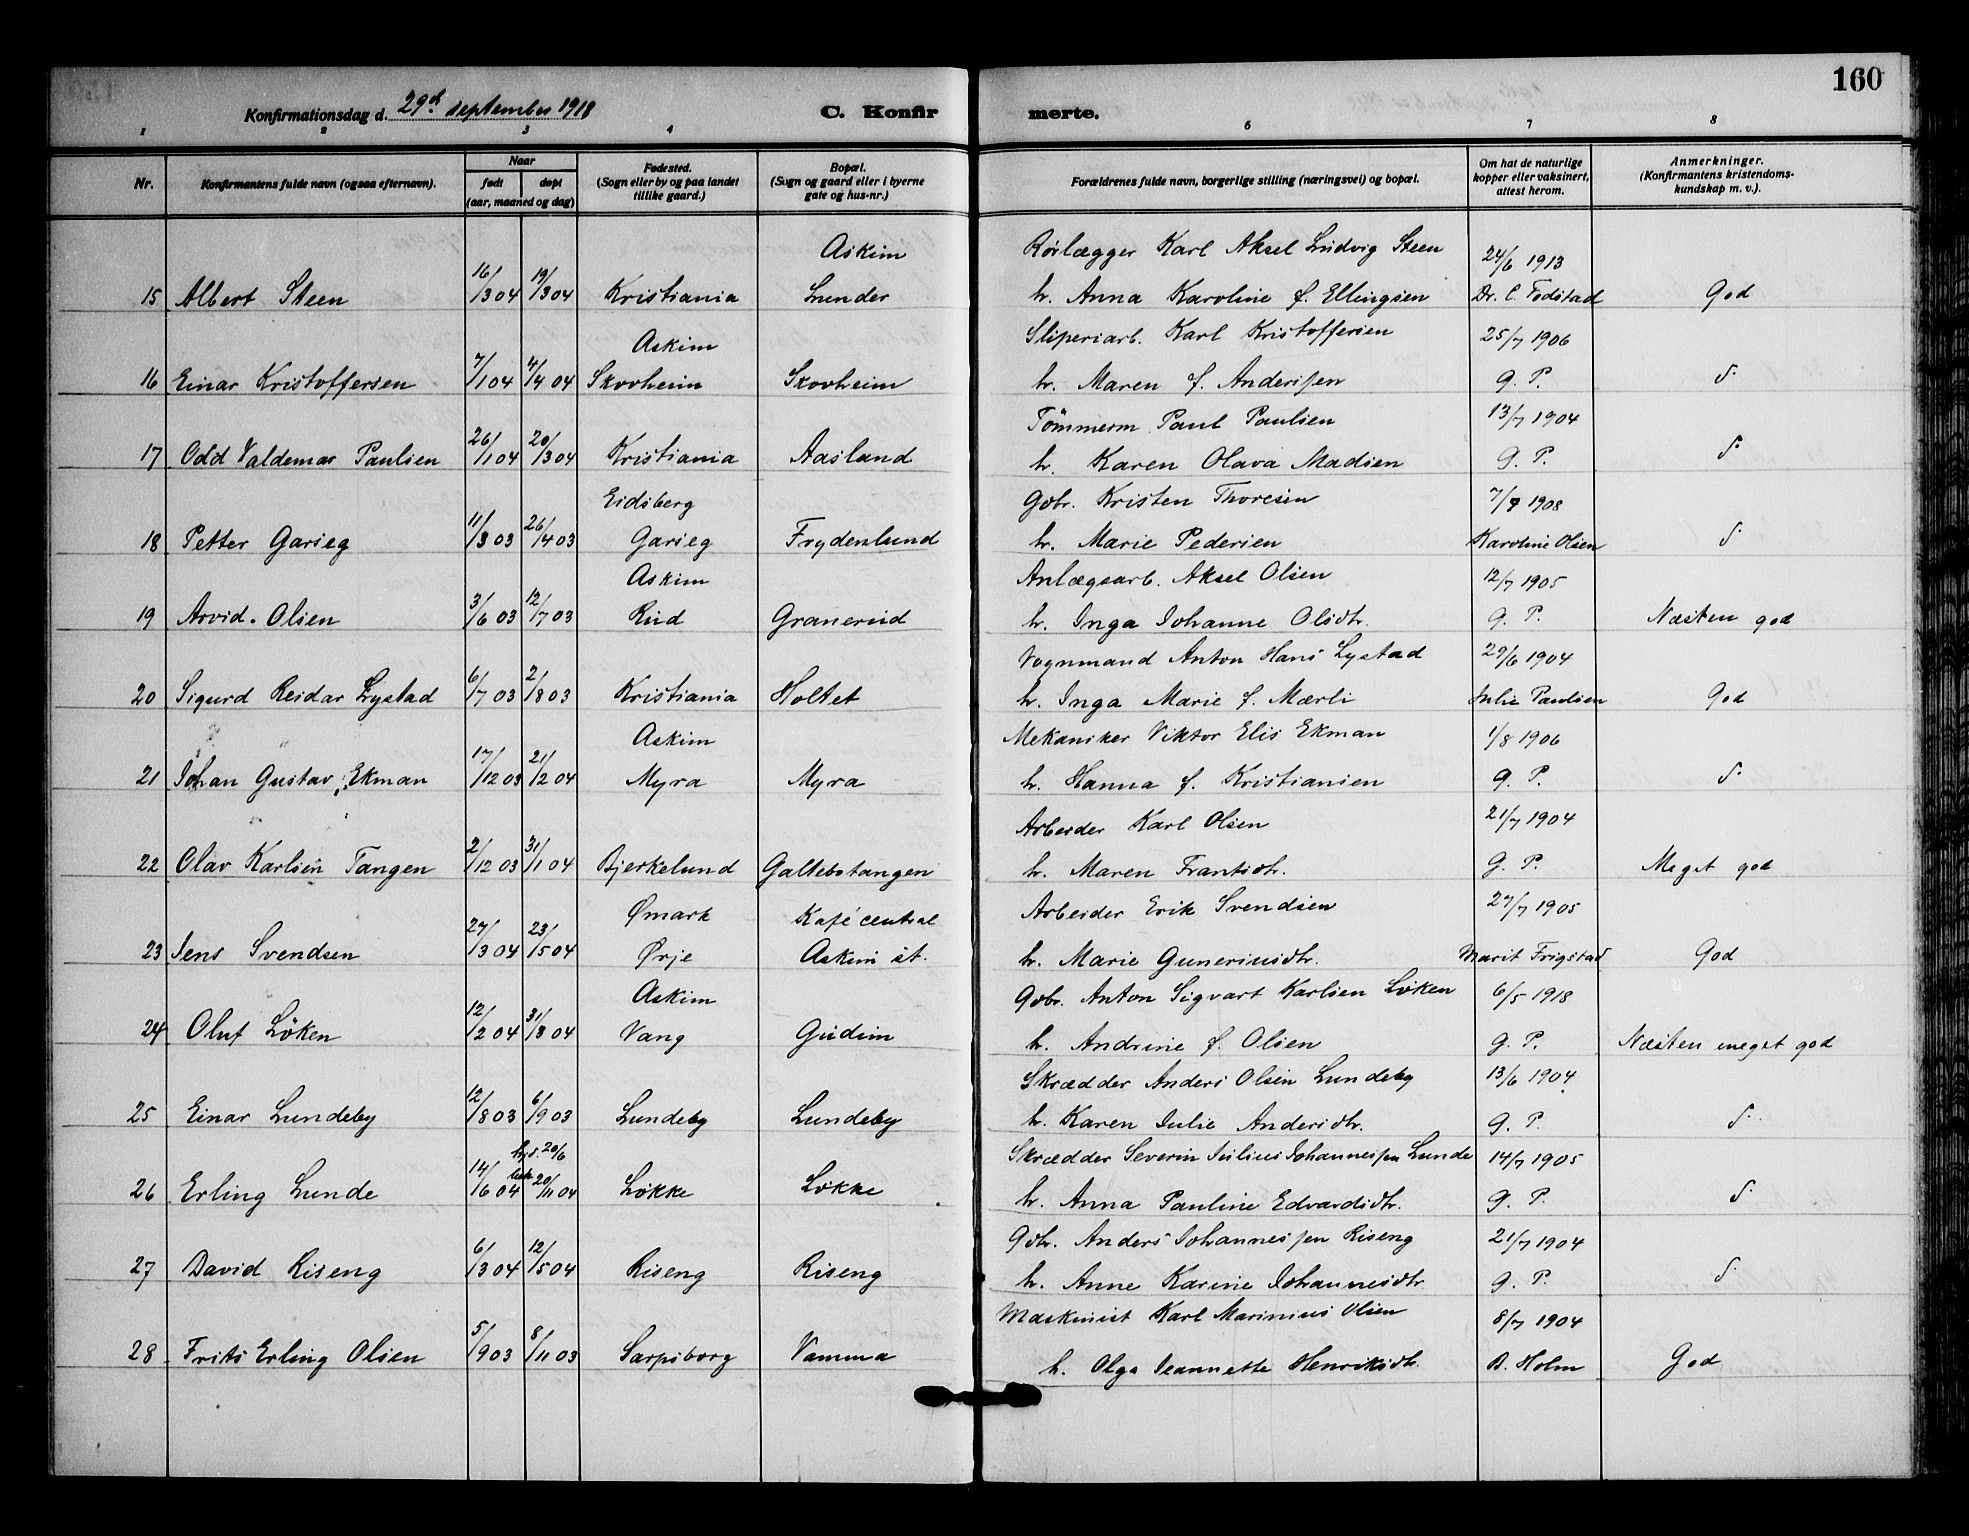 160
Konfirmationsdag d. 29de september 1918
C. Konfirmerte.
1 2 3 4 6 7 8
Nr.
Konfirmantens fulde navn (ogsaa efternavn).
Naar
født døpt
(aar, maaned og dag)
Fødested.
(Sogn eller by og paa landet
tillike gaard.)
Bopæl.
(Sogn og gaard eller i byerne
gate og hus-nr.)
Forældrenes fulde navn, borgerlige stilling (næringsvei) og bopæl.
Om hat de naturlige
kopper eller vaksinert,
attest herom.
Anmerkninger.
(Konfirmantens kristendoms-
kundskap m. v.).
Askim Rörlægger Karl Aksel Ludvig Steen 24/6 1913
15 Albert Steen 16/3 04 19/3 04 Kristiania Lunder h. Anna Karoline f. Ellingsen Dr. C. Fodstad God
Askim Sliperiarb. Karl Kristoffersen 25/7 1906
16 Einar Kristoffersen 7/1 04 4/4 04 Skovheim Skovheim h. Maren f. Andersen G. P. S.
Tömmerm. Paul Paulsen 13/7 1904
17 Odd Valdemar Paulsen 26/1 04 20/3 04 Kristiania Aasland h. Karen Olava Madsen G. P. S.
Eidsberg Gbr. Kristen Thoresen 7/9 1908
18 Petter Garseg 11/3 03 26/4 03 Garseg Frydenlund h. Marie Pedersen Karoline Olsen S.
Askim Anlægsarb. Aksel Olsen 12/7 1905
19 Arvid Olsen 3/6 03 12/7 03 Rud Granerud h. Inga Johanne Olsdtr. G. P. Næsten god
Vognmand Anton Hans Lystad 29/6 1904
20 Sigurd Reidar Lystad 6/7 03 2/8 03 Kristiania Holtet h. Inga Marie f. Mærli Julie Paulsen God
Askim Mekaniker Viktor Elis Ekman 1/8 1906
21 Johan Gustav Ekman 17/12 03 21/2 04 Myra Myra h. Hanna f. Kristiansen G. P. S.
Arbeider Karl Olsen 21/7 1904
22 Olav Karlsen Tangen 2/12 03 31/1 04 Bjerkelund Galtebotangen h. Maren Frantsdtr. G. P. Meget god
Ømark Kafé central Arbeider Erik Svendsen 27/7 1905
23 Jens Svendsen 27/3 04 23/5 04 Ørje Askim st. h. Marie Guneriusdtr. Marit Frigstad God
Askim Gbr. Anton Sigvart Karlsen Løken 6/5 1918
24 Oluf Löken 12/2 04 31/3 04 Vang Gudim h. Andrine f. Olsen G. P. Næsten meget god
Skrædder Anders Olsen Lundeby 13/6 1904
25 Einar Lundeby 12/8 03 6/9 03 Lundeby Lundeby h. Karen Julie Andersdtr. G. P. S.
hjd. 20/6 Skrædder Severin Julius Johannessen Lunde 14/7 1905
26 Erling Lunde 14/6 04 bek 20/11 04 Løkke Løkke h. Anna Pauline Edvardsdtr. G. P. S.
Gbr. Anders Johannessen Riseng 21/7 1904
27 David Riseng 6/3 04 12/5 04 Riseng Riseng h. Anne Karine Johannesdtr. G. P. S.
Maskinist Karl Marinius Olsen 8/7 1904
28 Frits Erling Olsen 5/9 03 8/11 03 Sarpsborg Vamma h. Olga Jeannette Henriksdtr. B. Holm God